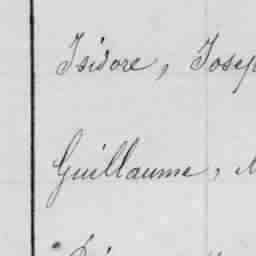 Isidore, Josep
Guillaume,